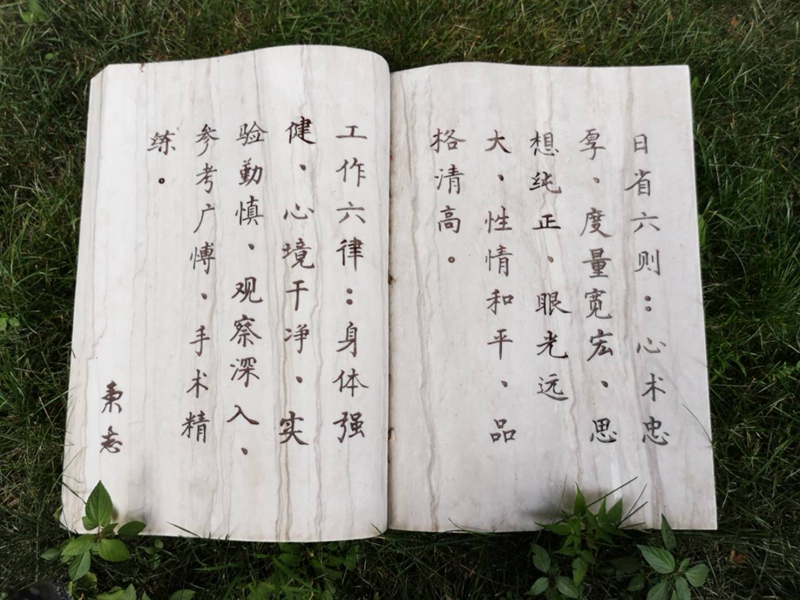 日省六则：心术忠
厚、度量宽宏、思
想纯正、眼光远
大、性情和平、品
格清高。
工作六律：身体强
健、心境干净、实
验勤慎、观察深入、
参考广愽、手术精
练。
秉志